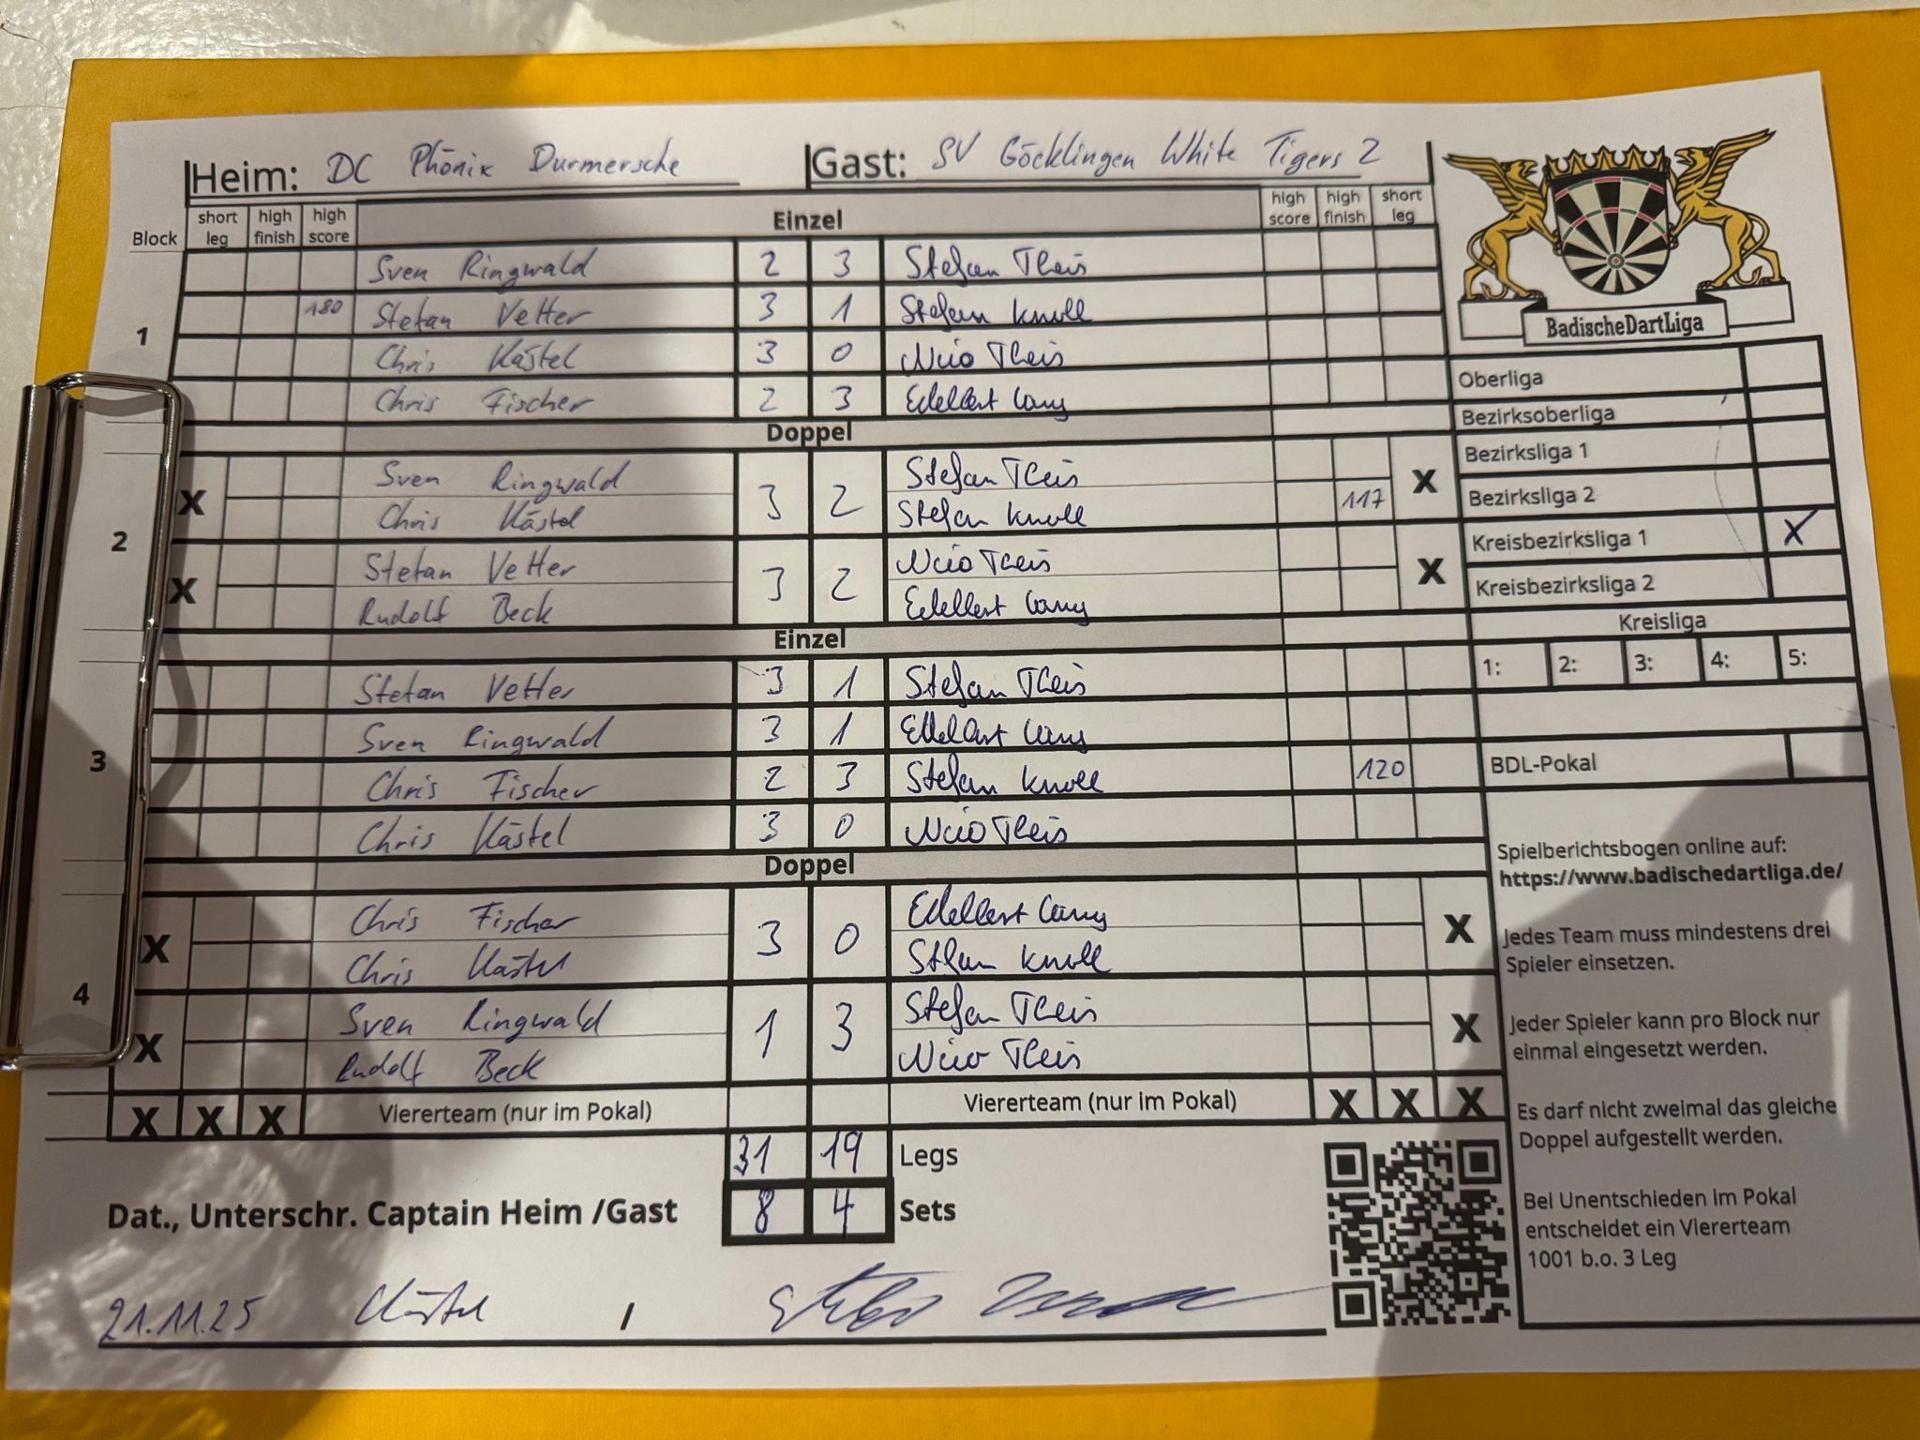 Heim: DC Phönix Durmersche Gast: SV Göcklingen White Tigers 2
Block short leg high finish high score Einzel high score high finish short leg
1
Sven Ringwald 2 3 Stefan Theis
180 Stefan Vetter 3 1 Stefan Knoll
Chris Kästel 3 0 Nico Theis
Chris Fischer 2 3 Edelbert Lang
Doppel
2
X Sven Ringwald 3 2 Stefan Theis X
Chris Kästel Stefan Knoll 117
X Stefan Vetter 3 2 Nico Theis X
Rudolf Beck Edelbert Lang
Einzel
3
Stefan Vetter 3 1 Stefan Theis
Sven Ringwald 3 1 Edelbert Lang
Chris Fischer 2 3 Stefan Knoll 120
Chris Kästel 3 0 Nico Theis
Doppel
4
X Chris Fischer 3 0 Edelbert Lang X
Chris Kästel Stefan Knoll
X Sven Ringwald 1 3 Stefan Theis X
Rudolf Beck Nico Theis
X X X Viererteam (nur im Pokal) Viererteam (nur im Pokal) X X X
31 19 Legs
8 4 Sets
Dat., Unterschr. Captain Heim /Gast
21.11.25 Kästel /
BadischeDartLiga
Oberliga
Bezirksoberliga
Bezirksliga 1
Bezirksliga 2
Kreisbezirksliga 1 X
Kreisbezirksliga 2
Kreisliga
1: 2: 3: 4: 5:
BDL-Pokal
Spielberichtsbogen online auf:
https://www.badischedartliga.de/
Jedes Team muss mindestens drei
Spieler einsetzen.
Jeder Spieler kann pro Block nur
einmal eingesetzt werden.
Es darf nicht zweimal das gleiche
Doppel aufgestellt werden.
Bei Unentschieden im Pokal
entscheidet ein Viererteam
1001 b.o. 3 Leg